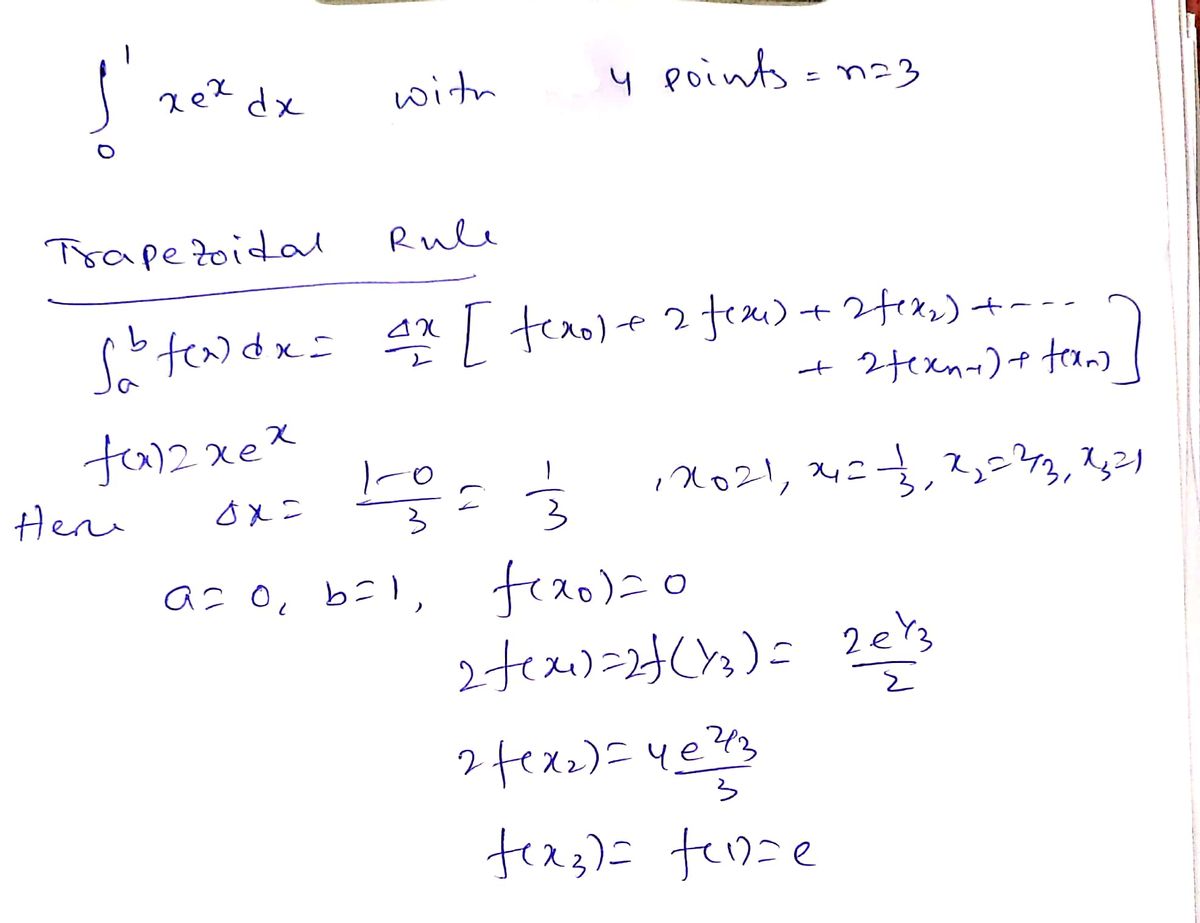 ∫₀¹ xeˣ dx with 4 points = n=3
Trapezoidal Rule
∫ₐᵇ f(x)dx = Δx/2 [ f(x₀) + 2f(x₁) + 2f(x₂) + ---
+ 2f(xₙ₋₁) + f(xₙ) ]
f(x) = xeˣ
Here Δx = 1-0/3 = 1/3 , x₀=1, x₁=1/3, x₂=2/3, x₃=1
a=0, b=1, f(x₀)=0
2f(x₁)=2f(1/3)= 2e^1/3/2
2f(x₂)= 4e^2/3/3
f(x₃)= f(1)=e